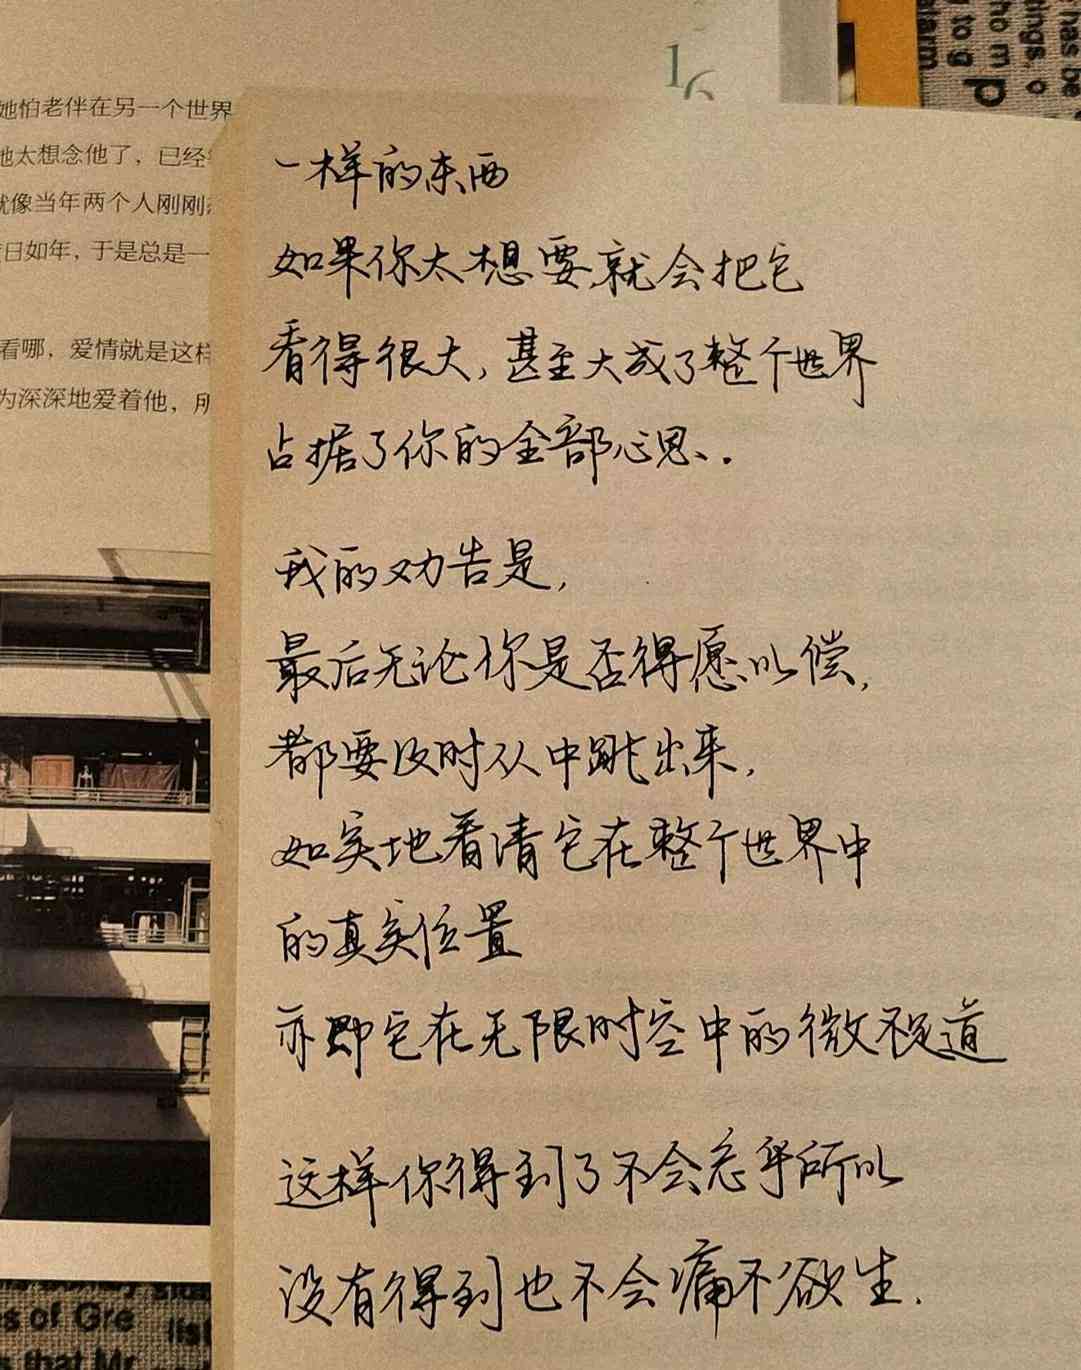 16
她怕老伴在另一个世界
她太想念他了，已经
就像当年两个人刚刚
日如年，于是总是一
看哪，爱情就是这样
为深深地爱着他，所
一样的东西
如果你太想要，就会把它
看得很大，甚至大成了整个世界
占据了你的全部心思．
我的劝告是，
最后无论你是否得愿以偿，
都要及时从中跳出来，
如实地看清它在整个世界中
的真实位置
亦即它在无限时空中的微不足道
这样你得到了不会忘乎所以
没有得到也不会痛不欲生．
has be
tings, o
ho m
y to g
p
alarm
s of Gre
list
that Mr